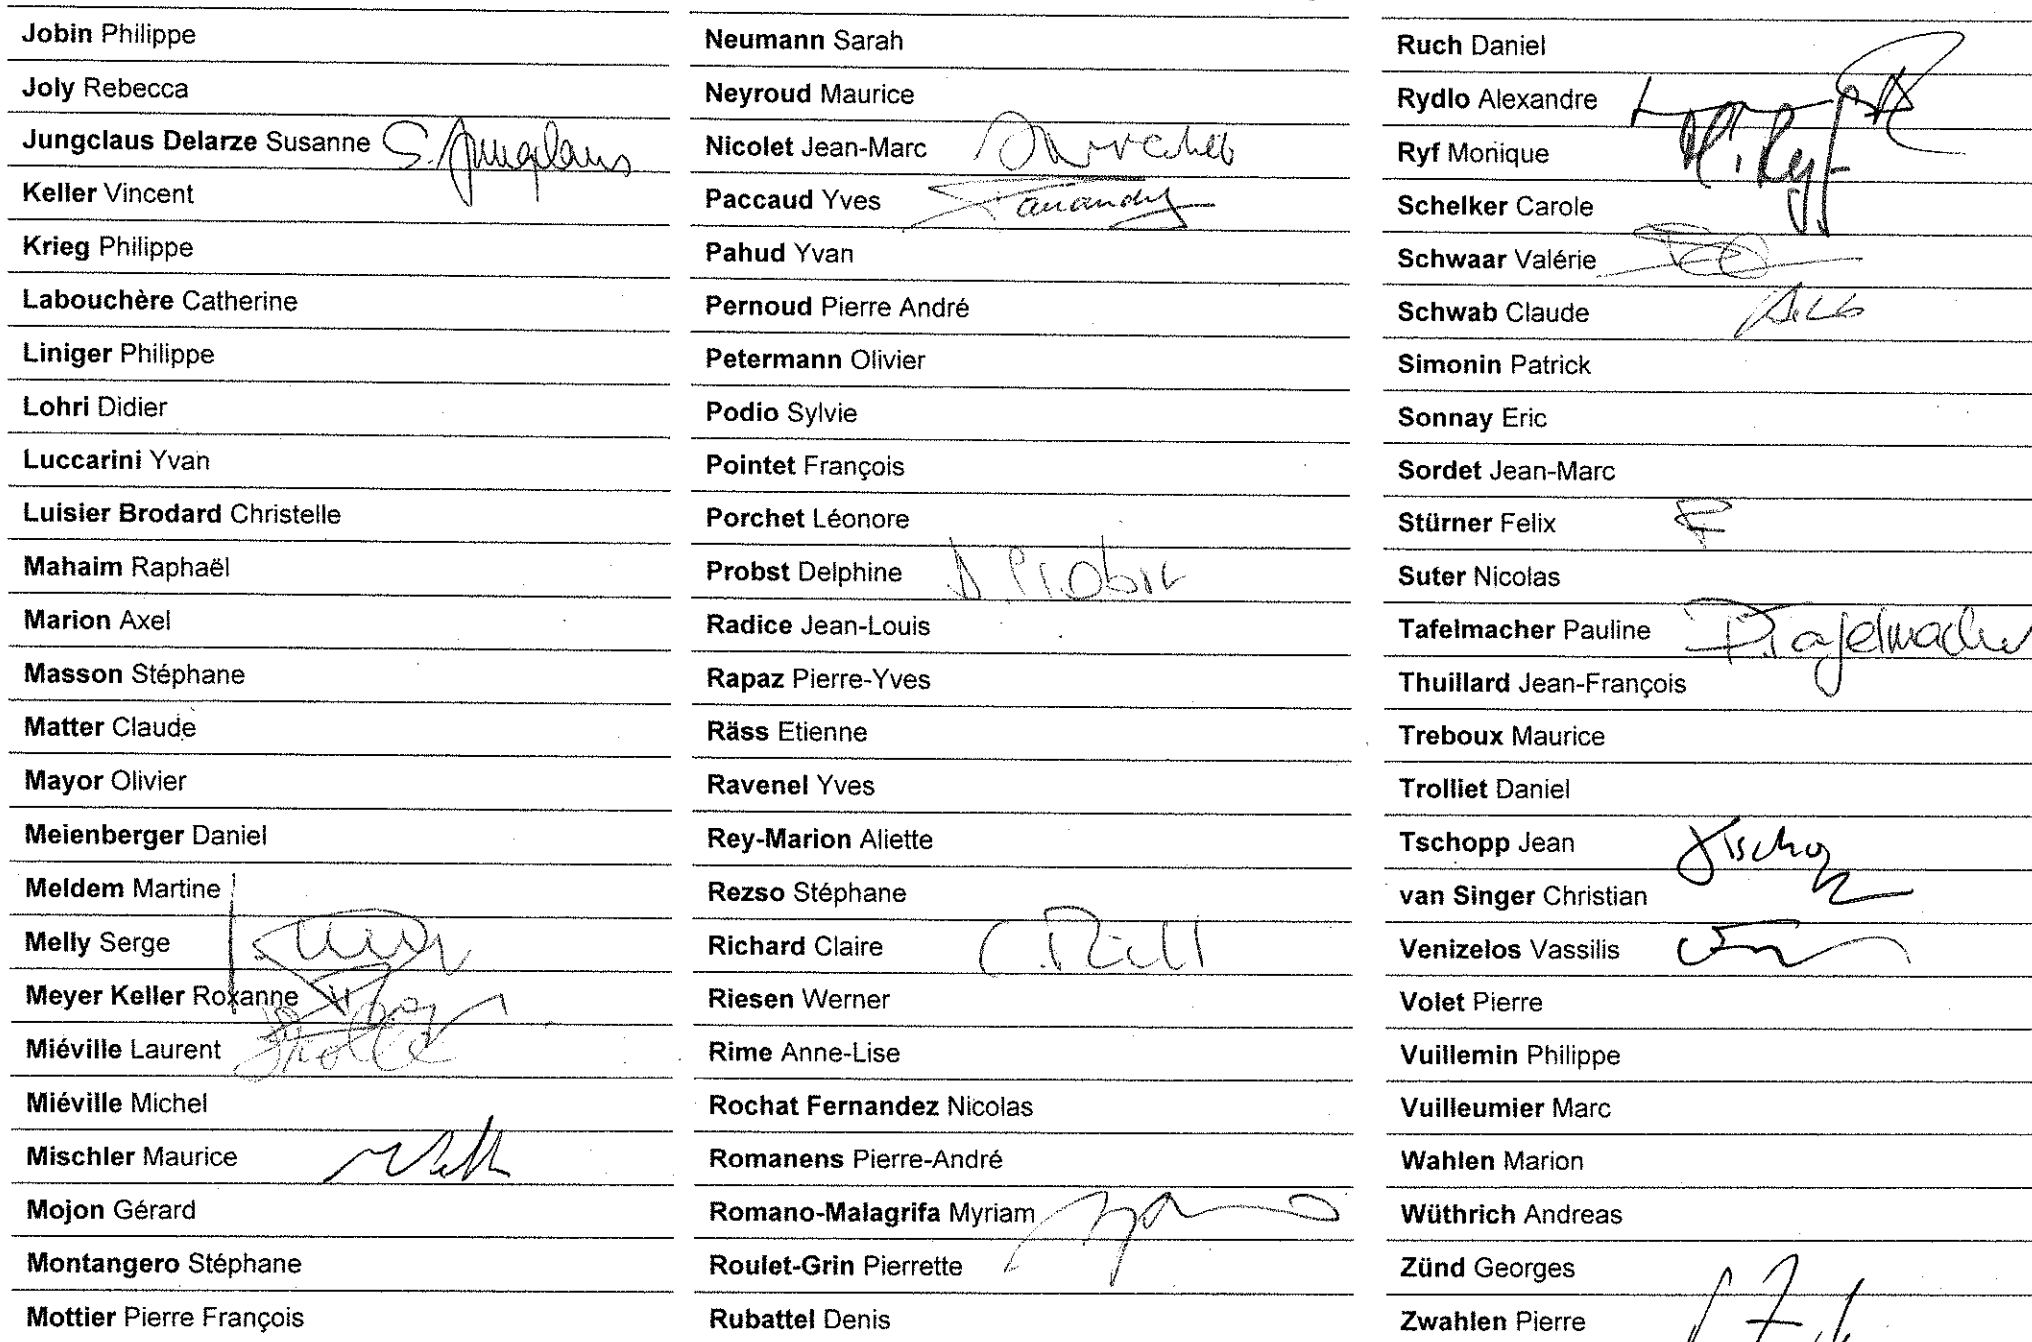 Jobin Philippe
Joly Rebecca
Jungclaus Delarze Susanne S. Jungclaus
Keller Vincent
Krieg Philippe
Labouchère Catherine
Liniger Philippe
Lohri Didier
Luccarini Yvan
Luisier Brodard Christelle
Mahaim Raphaël
Marion Axel
Masson Stéphane
Matter Claude
Mayor Olivier
Meienberger Daniel
Meldem Martine
Melly Serge
Meyer Keller Roxanne
Miéville Laurent
Miéville Michel
Mischler Maurice
Mojon Gérard
Montangero Stéphane
Mottier Pierre François
Neumann Sarah
Neyroud Maurice
Nicolet Jean-Marc
Paccaud Yves
Pahud Yvan
Pernoud Pierre André
Petermann Olivier
Podio Sylvie
Pointet François
Porchet Léonore
Probst Delphine D. Probst
Radice Jean-Louis
Rapaz Pierre-Yves
Räss Etienne
Ravenel Yves
Rey-Marion Aliette
Rezso Stéphane
Richard Claire
Riesen Werner
Rime Anne-Lise
Rochat Fernandez Nicolas
Romanens Pierre-André
Romano-Malagrifa Myriam
Roulet-Grin Pierrette
Rubattel Denis
Ruch Daniel
Rydlo Alexandre
Ryf Monique M. Ryf
Schelker Carole
Schwaar Valérie
Schwab Claude
Simonin Patrick
Sonnay Eric
Sordet Jean-Marc
Stürner Felix
Suter Nicolas
Tafelmacher Pauline P. Tafelmacher
Thuillard Jean-François
Treboux Maurice
Trolliet Daniel
Tschopp Jean
van Singer Christian
Venizelos Vassilis
Volet Pierre
Vuillemin Philippe
Vuilleumier Marc
Wahlen Marion
Wüthrich Andreas
Zünd Georges
Zwahlen Pierre